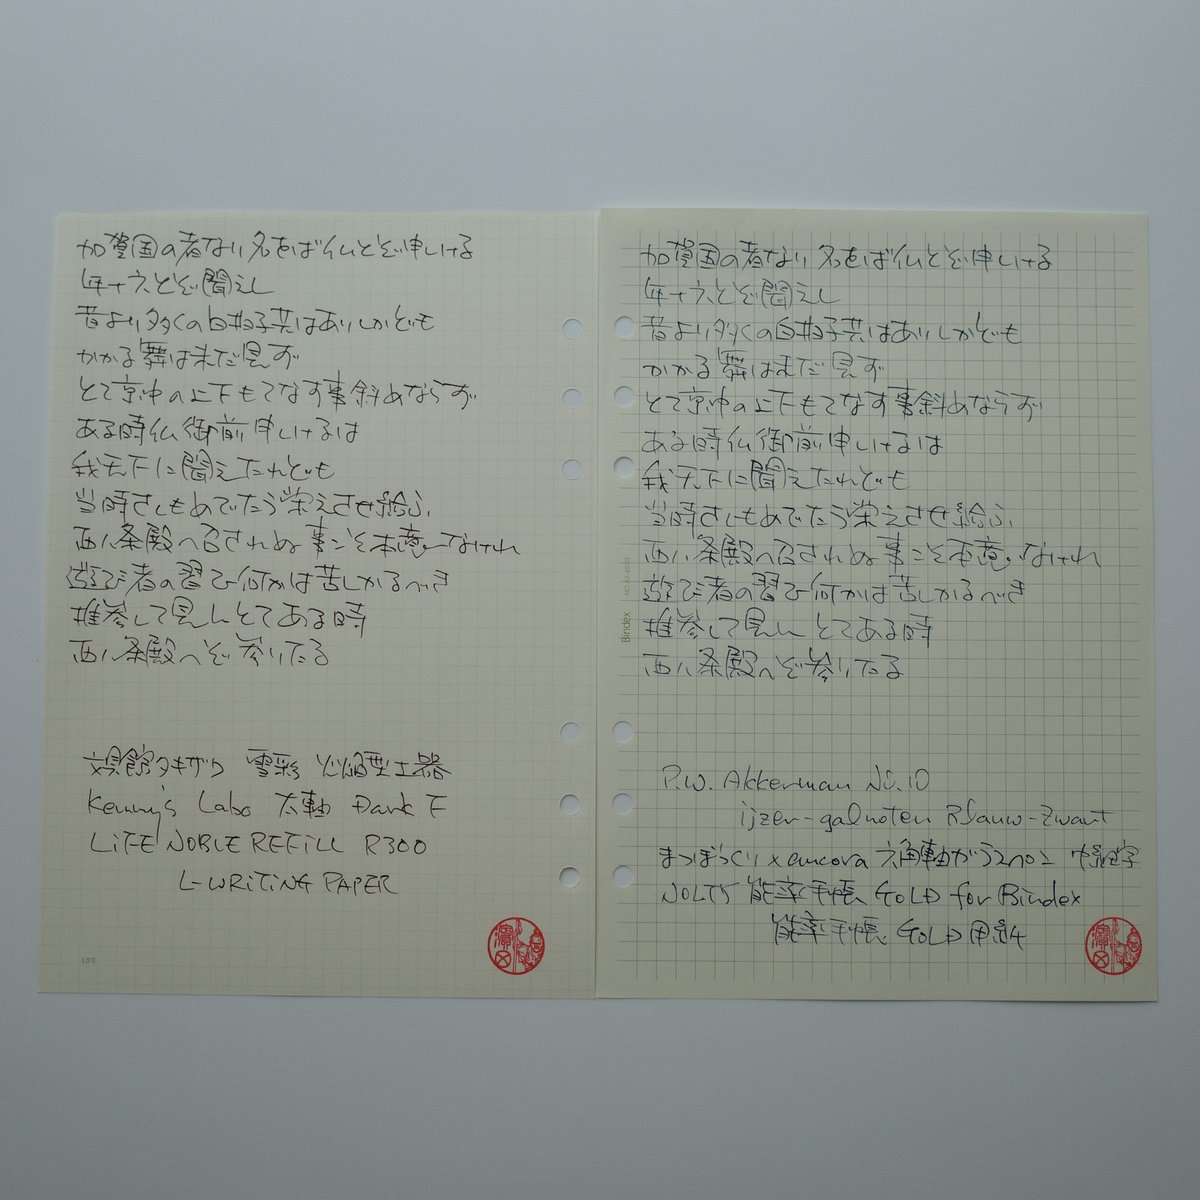 加賀国の者なり名をば仏とぞ申しける
年十六とぞ聞えし
昔より多くの白拍子共はありしかども
かかる舞は未だ見ず
とて京中の上下もてなす事斜めならず
ある時仏御前申しけるは
我天下に聞えたれども
当時さしもめでたう栄えさせ給ふ
西八条殿へ召されぬ事こそ本意なけれ
遊び者の習ひ何かは苦しかるべき
推参して見んとてある時
西八条殿へぞ参りたる
文具館タキザワ 雪彩 火焔型土器
Kenny's Labo 太軸 Dark F
LIFE NOBLE REFILL R300
L-WRITING PAPER
LIFE
加賀国の者なり名をば仏とぞ申しける
年十六とぞ聞えし
昔より多くの白拍子共はありしかども
かかる舞は未だ見ず
とて京中の上下もてなす事斜めならず
ある時仏御前申しけるは
我天下に聞えたれども
当時さしもめでたう栄えさせ給ふ
西八条殿へ召されぬ事こそ本意なけれ
遊び者の習ひ何かは苦しかるべき
推参して見んとてある時
西八条殿へぞ参りたる
P.W. Akkerman No.10
ijzer-galnoten Blauw-Zwart
まつぼっくり×ancora 六角軸がらスペン 中細字
NOLTY 能率手帳 GOLD for Bindex
能率手帳 GOLD 用紙
Bindex